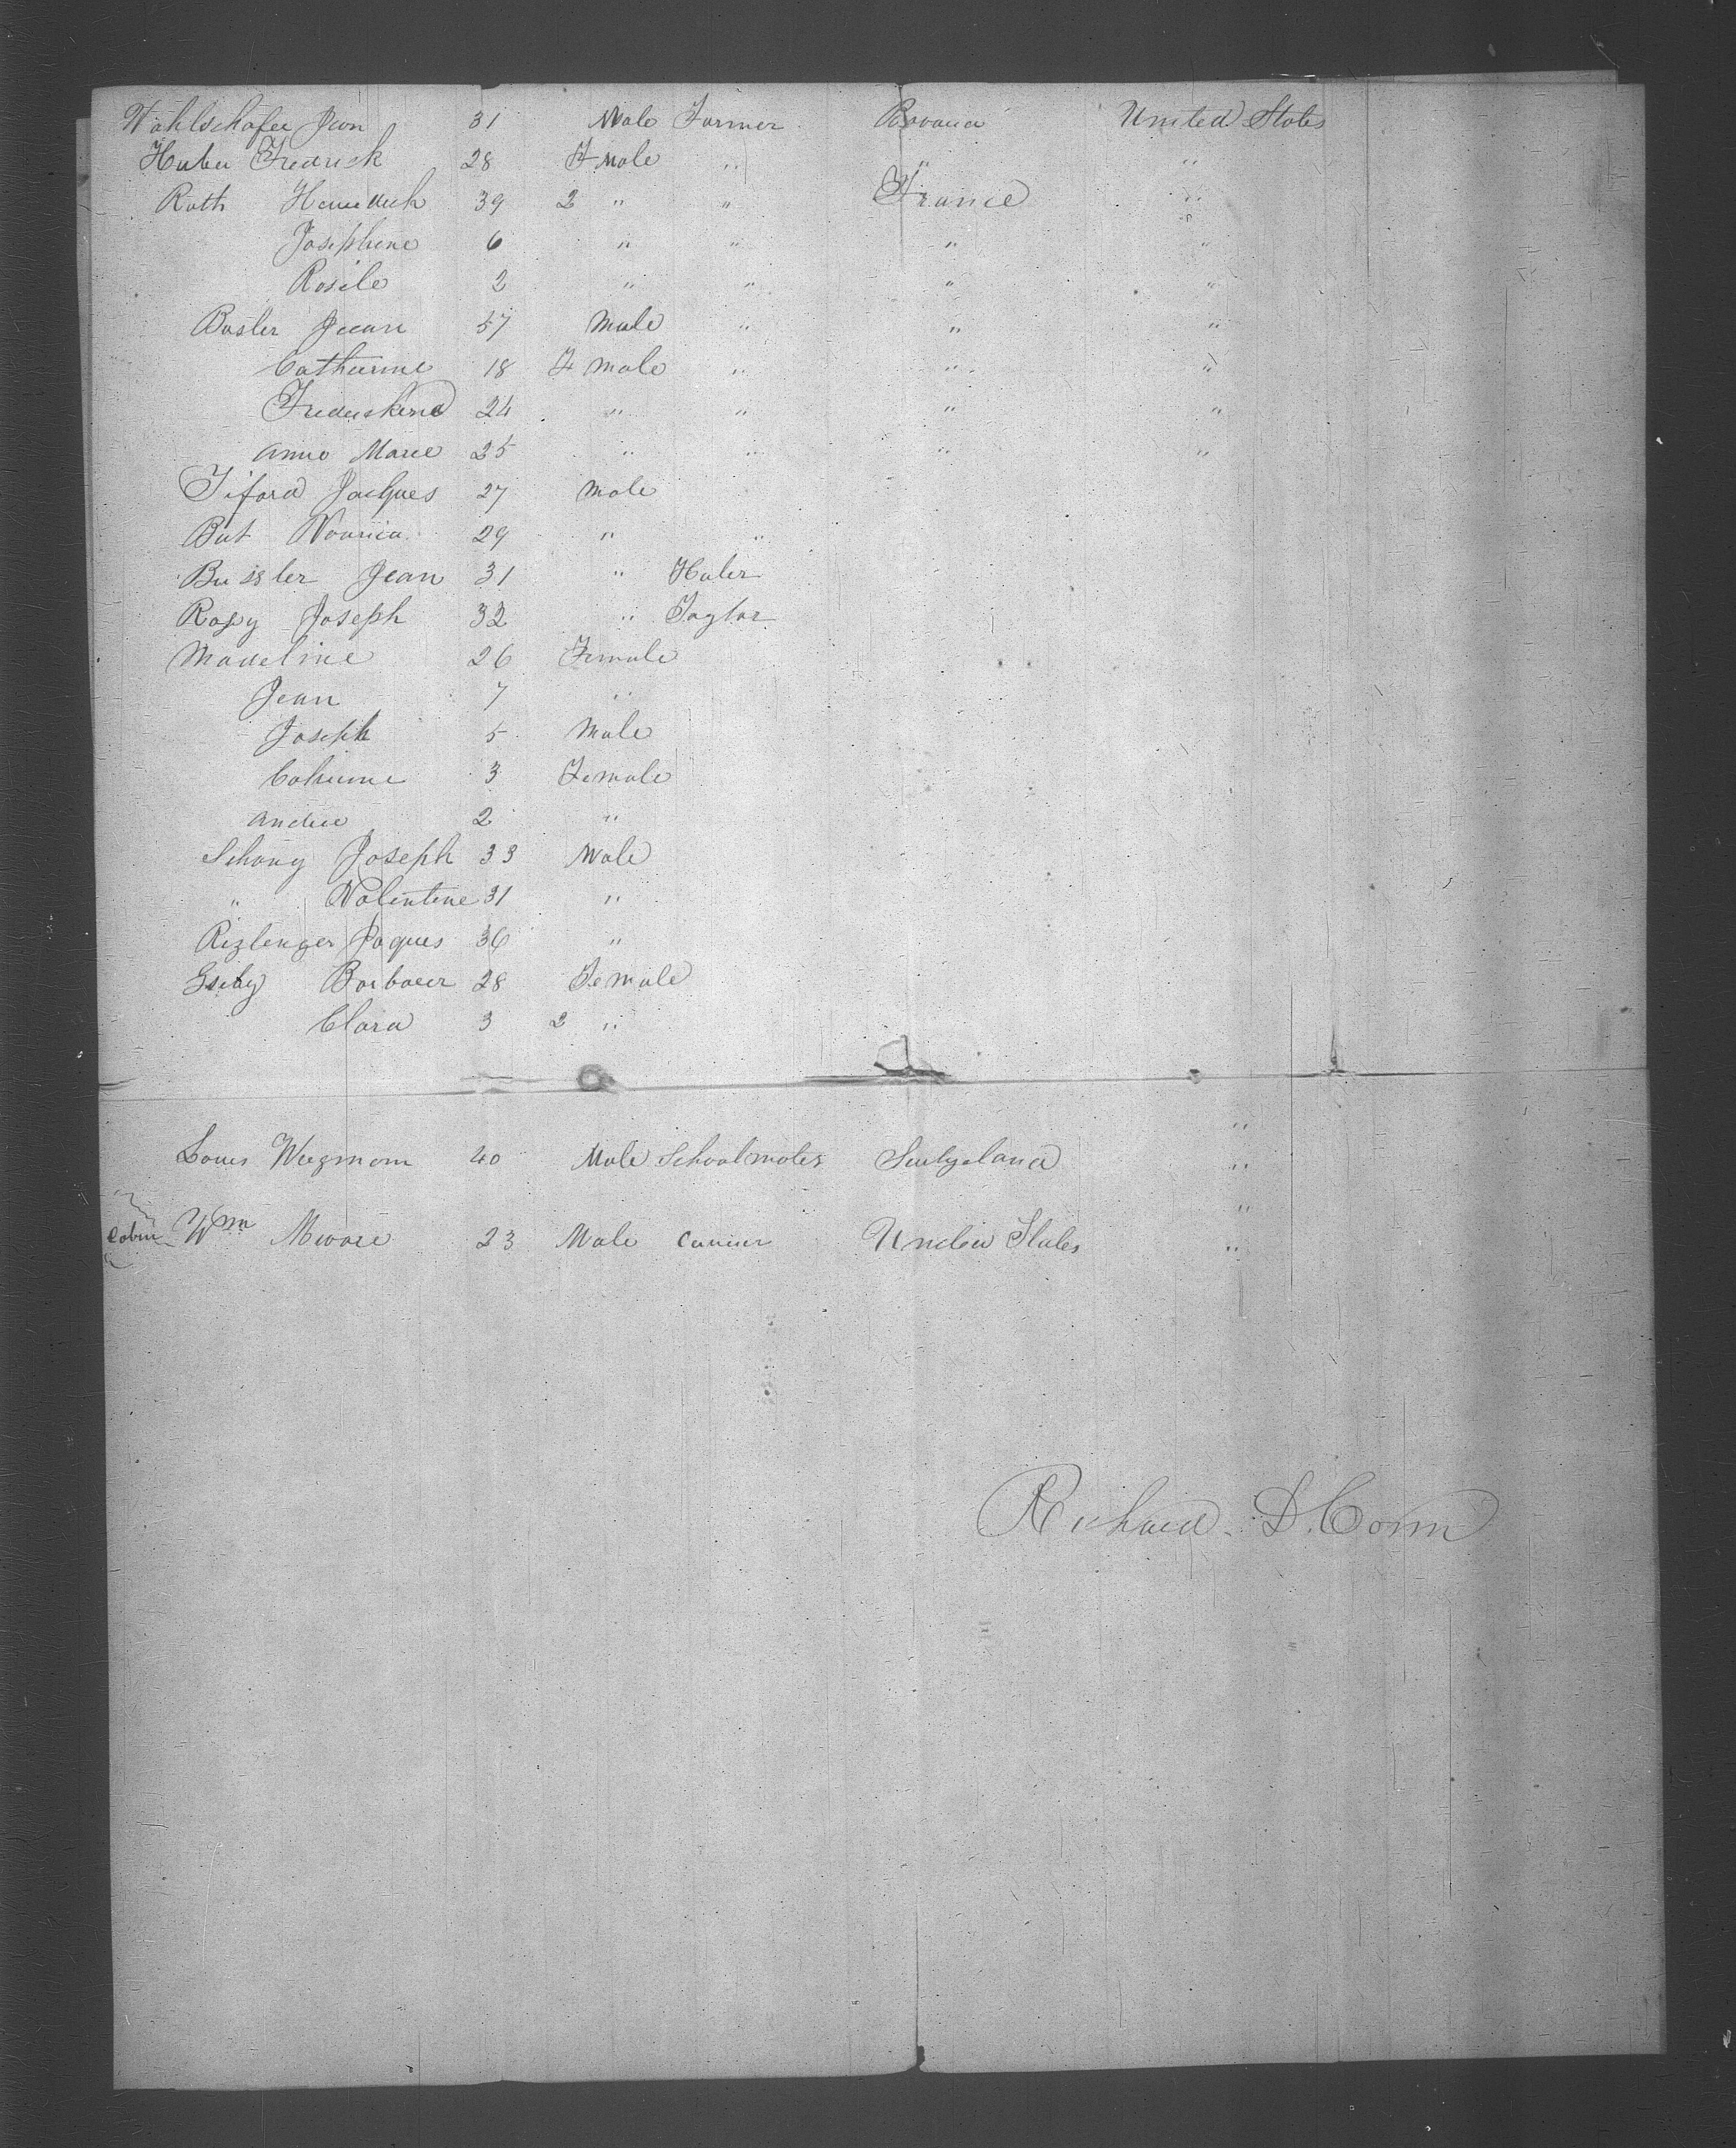 Wahlschafer Jean 31 Male Farmer Bavaria United States
Huber Fredrick 28 Fmale " " "
Roth 39 2 " " France "
Josephine 6 " " " "
Rosile 2 " " " "
Basler Jean 57 Male " " "
Catherine 18 Fmale " " "
Frederskene 24 " " " "
Anne Marie 25 " " " "
Jacques 27 Male
But 29 " "
Bussler Jean 31 " Hater
Rapy Joseph 32 " Taylor
Madeline 26 Female
Jean 7 "
Joseph 5 Male
Catherine 3 Female
Andree 2 "
Schany Joseph 33 Male
" Valentine 31 "
Rizlenger Jaques 36 "
Barbaer 28 Female
Clara 3 2 "
"
Louis Wegmann 40 Male Schoolmater "
"
Cabin Wm Moore 23 Male Currier United States "
Richard D. Conn